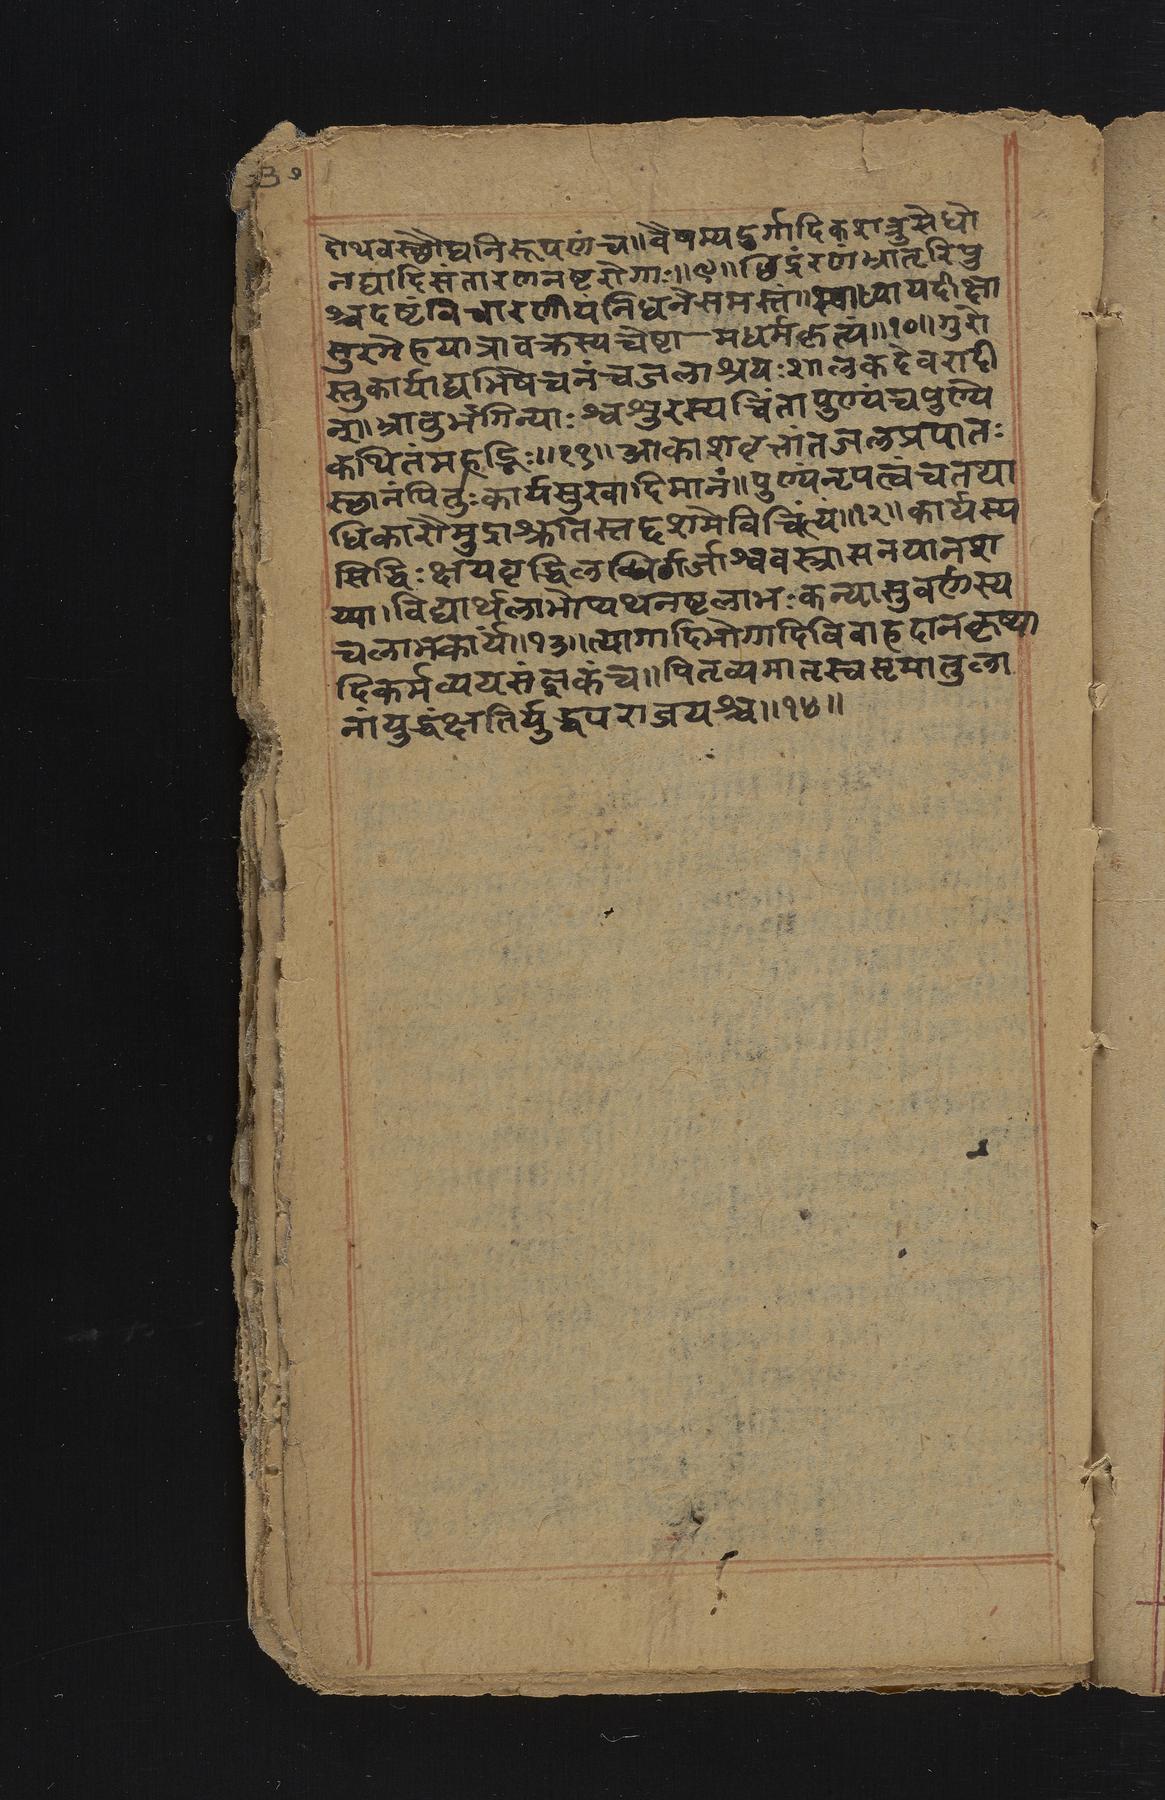 ३०
दोथवस्छौघनिरूपणंच॥वैषम्यदुर्गादिकशत्रुसैधौ
नद्यादिसंतारणनष्टरोगाः॥९॥छिद्रंरणंभ्रातृरिपु
श्चदष्टंविचारणीयंनिधनेसमस्तं॥स्वाध्यायदीक्षा
सुरगेहयात्रावक्तस्यचेष्टामधर्मकृत्यं॥१०॥गुरो
स्तुकार्याद्यभिषेचनंचजलाश्रयःशालकदेवरादी
न्॥भ्रातुर्भगिन्याःश्वश्रुरस्यचिंतापुण्यंचपुण्ये
कथितंमहद्भिः॥११॥आकाशवृत्तांतजलप्रपातः
स्छानंपितुःकार्यसुखादिमानं॥पुण्यंनृपत्वंचतथा
धिकारोमुद्राश्रुतिस्तद्दशमेविचिंत्यं॥१२॥कार्यस्य
सिद्धिःक्षयवृद्धिलब्धिर्गजाश्ववस्त्रासनयानश
य्या॥विद्यार्थलाभोप्यथनष्टलाभःकन्यासुवर्णस्य
चलाभकार्यं॥१३॥त्यागादिभोगादिविवाहदानकृष्या
दिकर्मव्ययसंज्ञकंच॥पितृव्यमातृस्वसृमातुला
नांयुद्धंक्षतिर्युद्धपराजयश्च॥१४॥